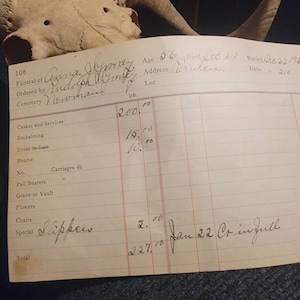 106
Funeral of Anna Age 26 Died Oct 20 Buried
Ordered by Rudolph Address
Cemetery Newman Lot Date
DR.
Casket and Services 200.00
Embalming 15.00
Dress 10.00
Hearse
No. Carriages @
Pall Bearers
Grave or Vault
Flowers
Chairs
Special Slippers 2.00 Jan 22 Cr in full
Total 227.00